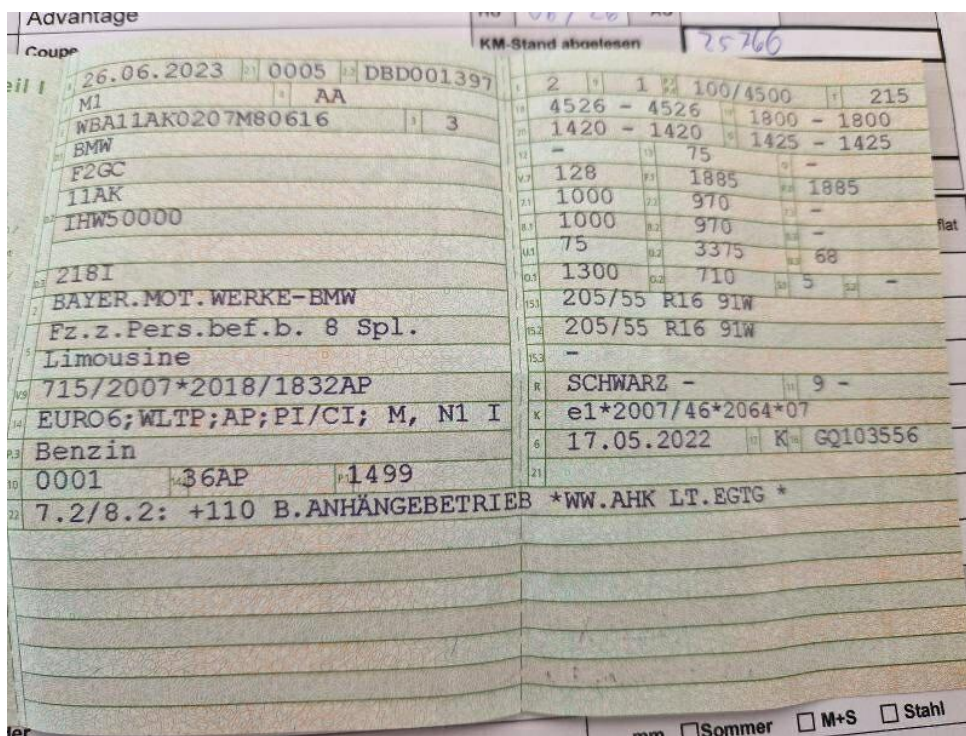 Advantage
Coupe
KM-Stand abgelesen 25766
26.06.2023 0005 DBD001397
M1 AA
WBA11AK0207M80616 3
BMW
F2GC
11AK
IHW50000
218I
BAYER.MOT.WERKE-BMW
Fz.z.Pers.bef.b. 8 Spl.
Limousine
V.9 715/2007*2018/1832AP
14 EURO6;WLTP;AP;PI/CI; M, N1 I
P.3 Benzin
10 0001 36AP P.1 1499
22 7.2/8.2: +110 B.ANHÄNGEBETRIEB *WW.AHK LT.EGTG *
2 1 100/4500 215
4526 - 4526 1800 - 1800
1420 - 1420 1425 - 1425
- 75 -
V.7 128 F.1 1885 1885
7.1 1000 7.2 970 -
8.1 1000 8.2 970 -
U.1 75 3375 68
O.1 1300 O.2 710 5 -
15.1 205/55 R16 91W
15.2 205/55 R16 91W
15.3 -
R SCHWARZ - 11 9 -
K e1*2007/46*2064*07
6 17.05.2022 K GQ103556
21
flat
mm Sommer M+S Stahl